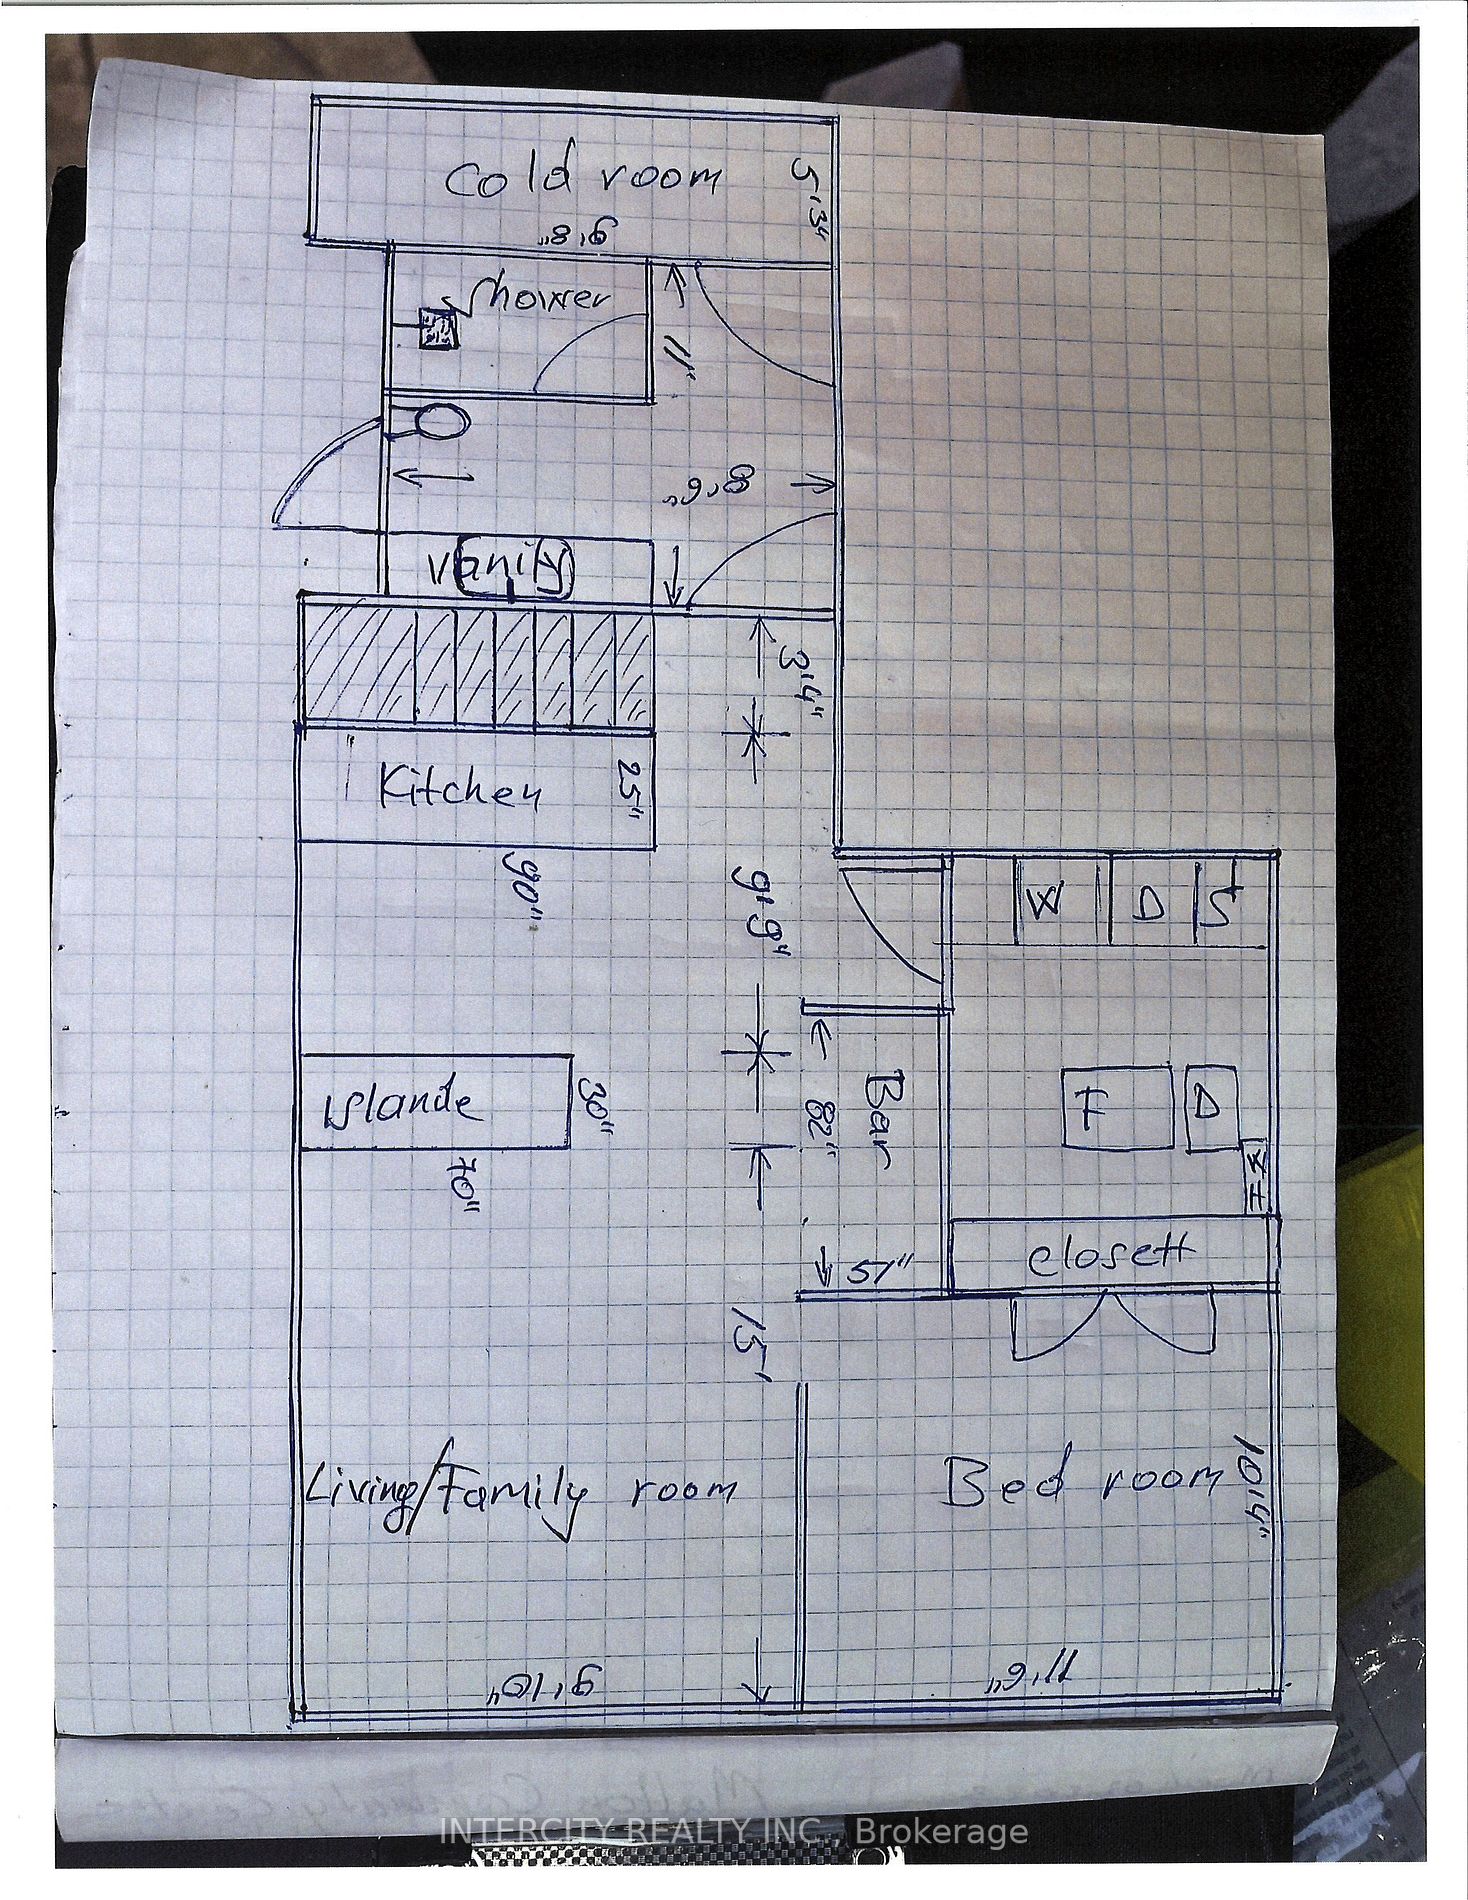 Cold room
5'3"
9'8"
Shower
11"
8'6"
Vanity
3'4"
Kitchen
25"
90"
9'9"
W
D
S
Islande
30"
70"
Bar
82"
51"
F
D
Closett
15'
Living/Family room
Bed room
10'4"
9'10"
11'6"
INTERCITY REALTY INC., Brokerage